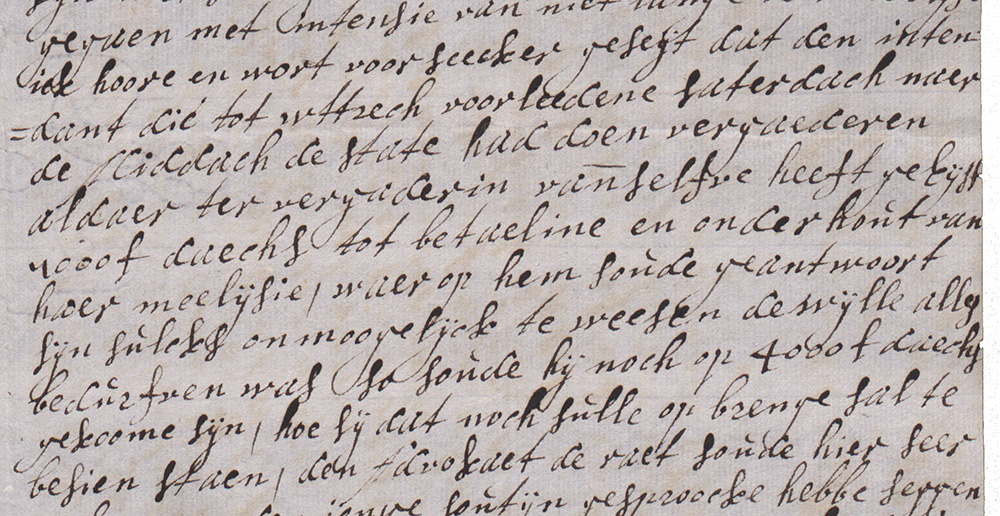 gegaen met intensie van niet lang
ick hoore en wort voor seecker geseijt dat den inten-
=dant die tot uttrech voorleedene saterdach naer
de Middach de state had doen vergaederen
aldaer ter vergaderin vanselfve heeft geeijst
daechs tot betaeline en onderhout van
haer meelijsie, waer op hem soude geantwoort
sijn sulcks onmoogelijck te weesen dewijlle alles
bedurfven was so soude hij noch op 4000 f daechs
gekoome sijn, hoe sij dat noch sulle op brenge sal te
besien staen, den advokaet de raet soude hier seer
soutijn gesproocke hebbe seggen